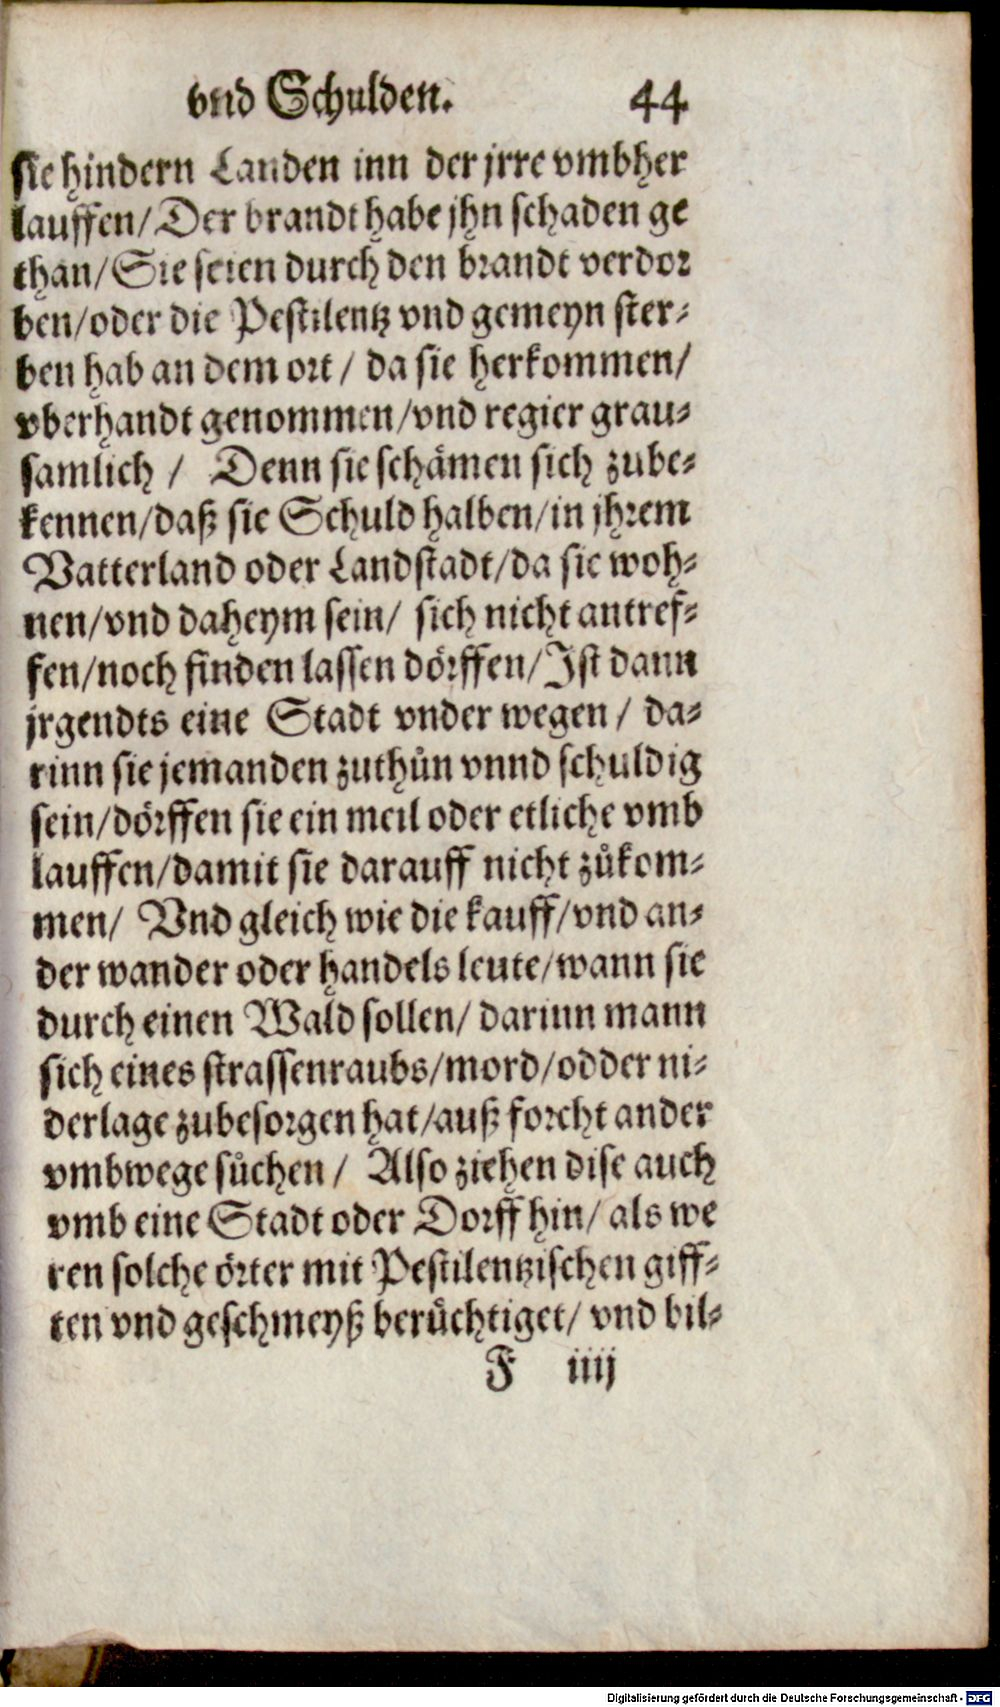 vnd Schulden. 44
sie hindern Landen inn der jrre vmbher
lauffen/ Der brandt habe jhn schaden ge
than/ Sie seien durch den brandt verdor
ben/ oder die Pestilentz vnd gemeyn ster⸗
ben hab an dem ort / da sie herkommen/
vberhandt genommen/ vnd regier grau⸗
samlich / Denn sie schämen sich zube⸗
kennen/ daß sie Schuld halben/ in jhrem
Vatterland oder Landstadt/ da sie woh⸗
nen/ vnd daheym sein/ sich nicht antref⸗
fen/ noch finden lassen dörffen/ Ist dann
jrgendts eine Stadt vnder wegen / da⸗
rinn sie jemanden zuthůn vnnd schuldig
sein/ dörffen sie ein meil oder etliche vmb
lauffen/ damit sie darauff nicht zůkom⸗
men/ Vnd gleich wie die kauff/ vnd an⸗
der wander oder handels leute/ wann sie
durch einen Wald sollen/ darinn mann
sich eines strassenraubs/ mord/ odder ni⸗
derlage zubesorgen hat/ auß forcht ander
vmbwege sůchen / Also ziehen dise auch
vmb eine Stadt oder Dorff hin/ als we
ren solche örter mit Pestilentzischen giff⸗
ten vnd geschmeyß berüchtiget/ vnd bil⸗
F iiij
Digitalisierung gefördert durch die Deutsche Forschungsgemeinschaft - DFG